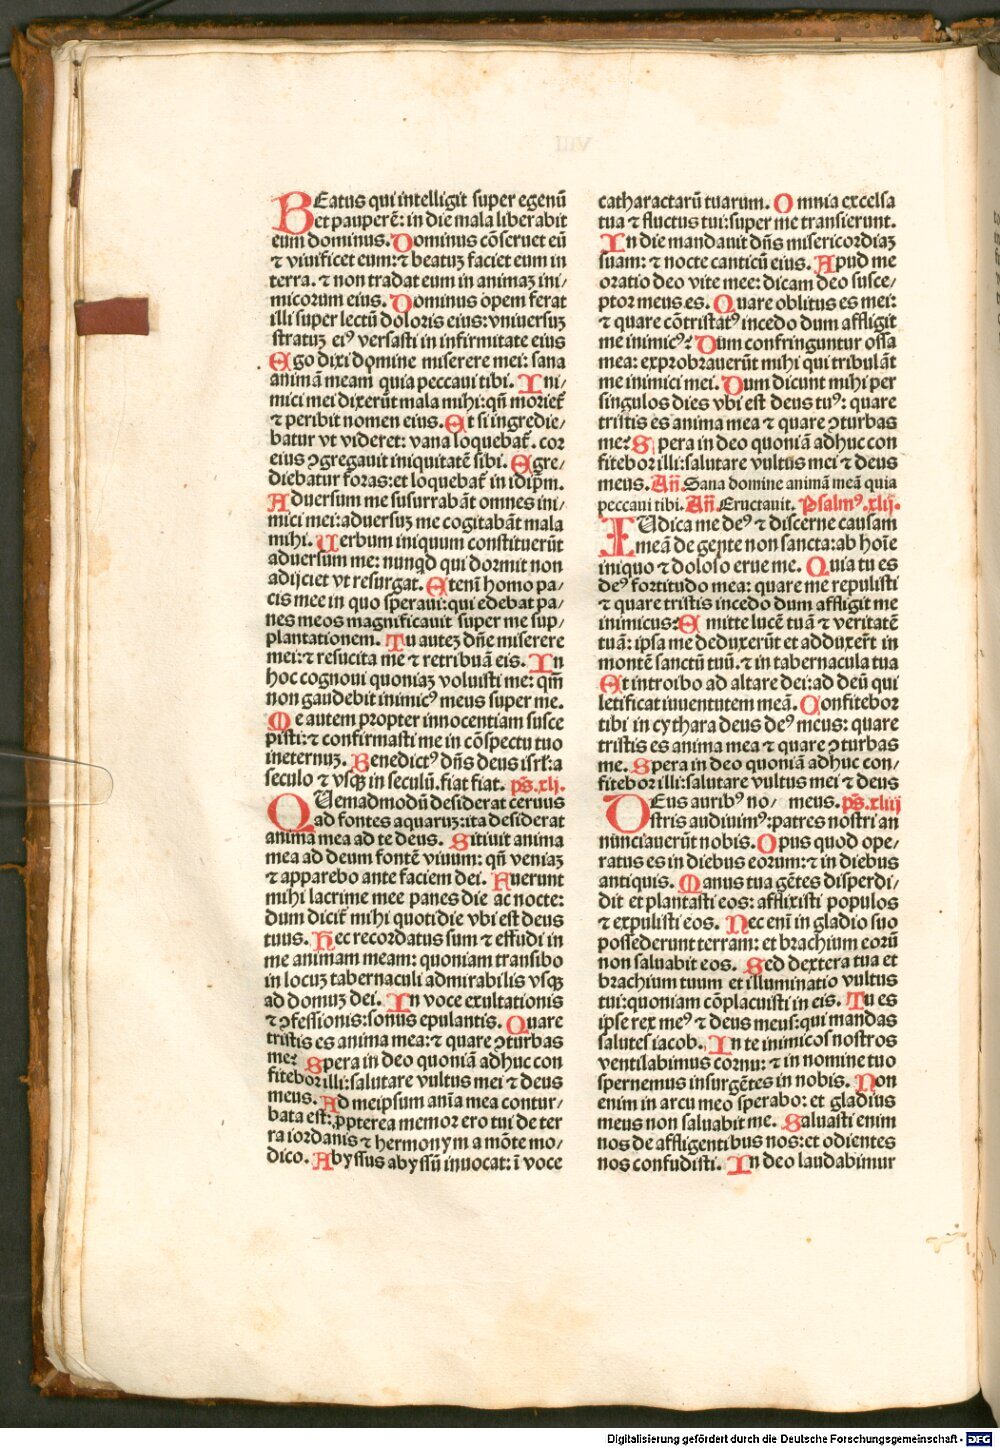 BEatus qui intelligit super egenū
et pauperē: in die mala liberabit
eum dominus. Dominus cōseruet eū
⁊ viuificet eum: ⁊ beatuʒ faciet eum in
terra. ⁊ non tradat eum in animaʒ ini/
micorum eius. Dominus opem ferat
illi super lectū doloris eius: vniuersuʒ
stratuʒ eiꝰ versasti in infirmitate eius
Ego dixi domine miserere mei: sana
animā meam quia peccaui tibi. Ini/
mici mei dixerūt mala mihi: qn̄ moriet̄
⁊ peribit nomen eius. Et si ingredie/
batur vt videret: vana loquebat̄. cor
eius ꝯgregauit iniquitatē sibi. Egre/
diebatur foras: et loquebat̄ in idip̄m.
Aduersum me susurrabāt omnes ini/
mici mei: aduersuʒ me cogitabāt mala
mihi. Uerbum iniquum constituerūt
aduersum me: nunqd qui dormit non
adijciet vt resurgat. Etenī homo pa/
cis mee in quo speraui: qui edebat pa/
nes meos magnificauit super me sup/
plantationem. Tu auteʒ dn̄e miserere
mei: ⁊ resucita me ⁊ retribuā eis. In
hoc cognoui quoniaʒ voluisti me: qm̄
non gaudebit inimicꝰ meus super me.
Me autem propter innocentiam susce
pisti: ⁊ confirmasti me in cōspectu tuo
ineternuʒ. Benedictꝰ dn̄s deus isrl: a
seculo ⁊ vsqʒ in seculū. fiat fiat. ps̄. xlj.
QUemadmodū desiderat ceruus
ad fontes aquaruʒ: ita desiderat
anima mea ad te deus. Sitiuit anima
mea ad deum fontē viuum: qn̄ veniaʒ
⁊ apparebo ante faciem dei. Fuerunt
mihi lacrime mee panes die ac nocte:
dum dicit̄ mihi quotidie vbi est deus
tuus. Hec recordatus sum ⁊ effudi in
me animam meam: quoniam transibo
in locuʒ tabernaculi admirabilis vsqʒ
ad domuʒ dei. In voce exultationis
⁊ ꝯfessionis: sonus epulantis. Quare
tristis es anima mea: ⁊ quare ꝯturbas
me? Spera in deo quoniā adhuc con
fitebor illi: salutare vultus mei ⁊ deus
meus. Ad meipsum anīa mea contur/
bata est: ꝓpterea memor ero tui de ter
ra iordanis ⁊ hermonym a mōte mo/
dico. Abyssus abyssū inuocat: ī voce
catharactarū tuarum. Omnia excelsa
tua ⁊ fluctus tui: super me transierunt.
In die mandauit dn̄s misericordiaʒ
suam: ⁊ nocte canticū eius. Apud me
oratio deo vite mee: dicam deo susce/
ptor meus es. Quare oblitus es mei:
⁊ quare cōtristatꝰ incedo dum affligit
me inimicꝰ? Dum confringuntur ossa
mea: exprobrauerūt mihi qui tribulāt
me inimici mei. Dum dicunt mihi per
singulos dies vbi est deus tuꝰ: quare
tristis es anima mea ⁊ quare ꝯturbas
me? Spera in deo quoniā adhuc con
fitebor illi: salutare vultus mei ⁊ deus
meus. Añ. Sana domine animā meā quia
peccaui tibi. Añ. Eructauit. Psalmꝰ. xlij.
IUdica me deꝰ ⁊ discerne causam
meā de gente non sancta: ab hoīe
iniquo ⁊ doloso erue me. Quia tu es
deꝰ fortitudo mea: quare me repulisti
⁊ quare tristis incedo dum affligit me
inimicus? Emitte lucē tuā ⁊ veritatē
tuā: ipsa me deduxerūt et adduxert̄ in
montē sanctū tuū. ⁊ in tabernacula tua
Et introibo ad altare dei: ad deū qui
letificat iuuentutem meā. Confitebor
tibi in cythara deus deꝰ meus: quare
tristis es anima mea ⁊ quare ꝯturbas
me. Spera in deo quoniā adhuc con/
fitebor illi: salutare vultus mei ⁊ deus
DEus auribꝰ no/ meus. ps̄. xliij
stris audiuimꝰ: patres nostri an
nunciauerūt nobis. Opus quod ope/
ratus es in diebus eorum: ⁊ in diebus
antiquis. Manus tua gētes disperdi/
dit et plantasti eos: afflixisti populos
⁊ expulisti eos. Nec enī in gladio suo
possederunt terram: et brachium eorū
non saluabit eos. Sed dextera tua et
brachium tuum et illuminatio vultus
tui: quoniam cōplacuisti in eis. Tu es
ipse rex meꝰ ⁊ deus meus: qui mandas
salutes iacob. In te inimicos nostros
ventilabimus cornu: ⁊ in nomine tuo
spernemus insurgētes in nobis. Non
enim in arcu meo sperabo: et gladius
meus non saluabit me. Saluasti enim
nos de affligentibus nos: et odientes
nos confudisti. In deo laudabimur
Digitalisierung gefördert durch die Deutsche Forschungsgemeinschaft - DFG